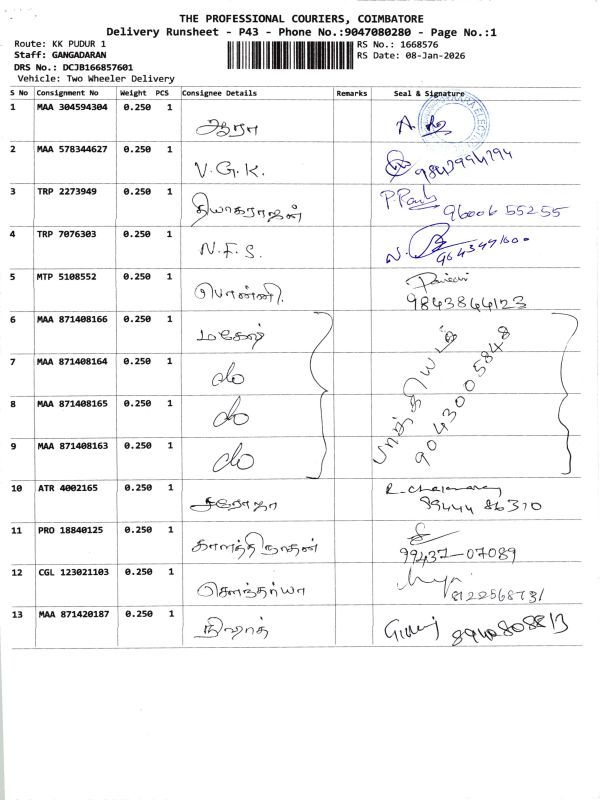 THE PROFESSIONAL COURIERS, COIMBATORE
Delivery Runsheet - P43 - Phone No.:9047080280 - Page No.:1
Route: KK PUDUR 1
RS No.: 1668576
Staff: GANGADARAN
RS Date: 08-Jan-2026
DRS No.: DCJB166857601
Vehicle: Two Wheeler Delivery
S No Consignment No Weight PCS Consignee Details Remarks Seal & Signature
1 MAA 304594304 0.250 1
2 MAA 578344627 0.250 1 V.G.K. 9847994794
3 TRP 2273949 0.250 1 தியாகராஜன் 96006 55255
4 TRP 7076303 0.250 1 N.F.S.
5 MTP 5108552 0.250 1 பொன்னி. 9843844123
6 MAA 871408166 0.250 1 மகேஷ்
7 MAA 871408164 0.250 1 do
8 MAA 871408165 0.250 1 do
9 MAA 871408163 0.250 1 do
90430 05848
10 ATR 4002165 0.250 1 சரோஜா 89444 86370
11 PRO 18840125 0.250 1 காளத்திநாதன் 99437-07089
12 CGL 123021103 0.250 1 சௌந்தர்யா 8122568731
13 MAA 871420187 0.250 1